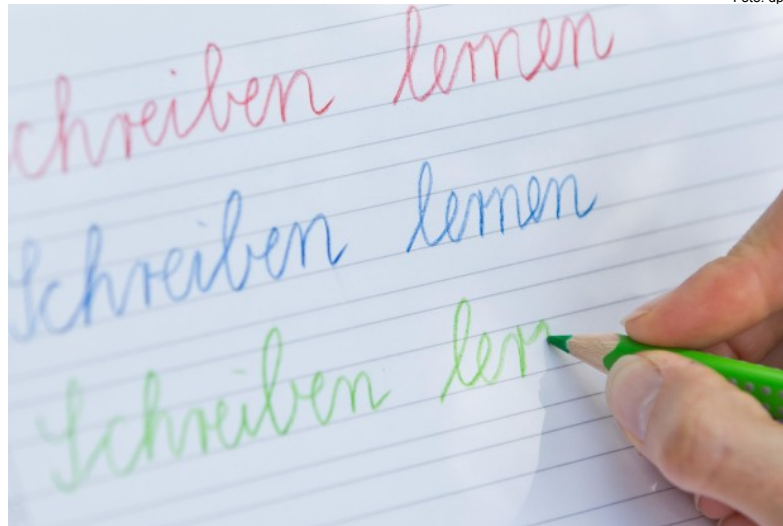 chreiben lernen
Schreiben lernen
Schreiben ler